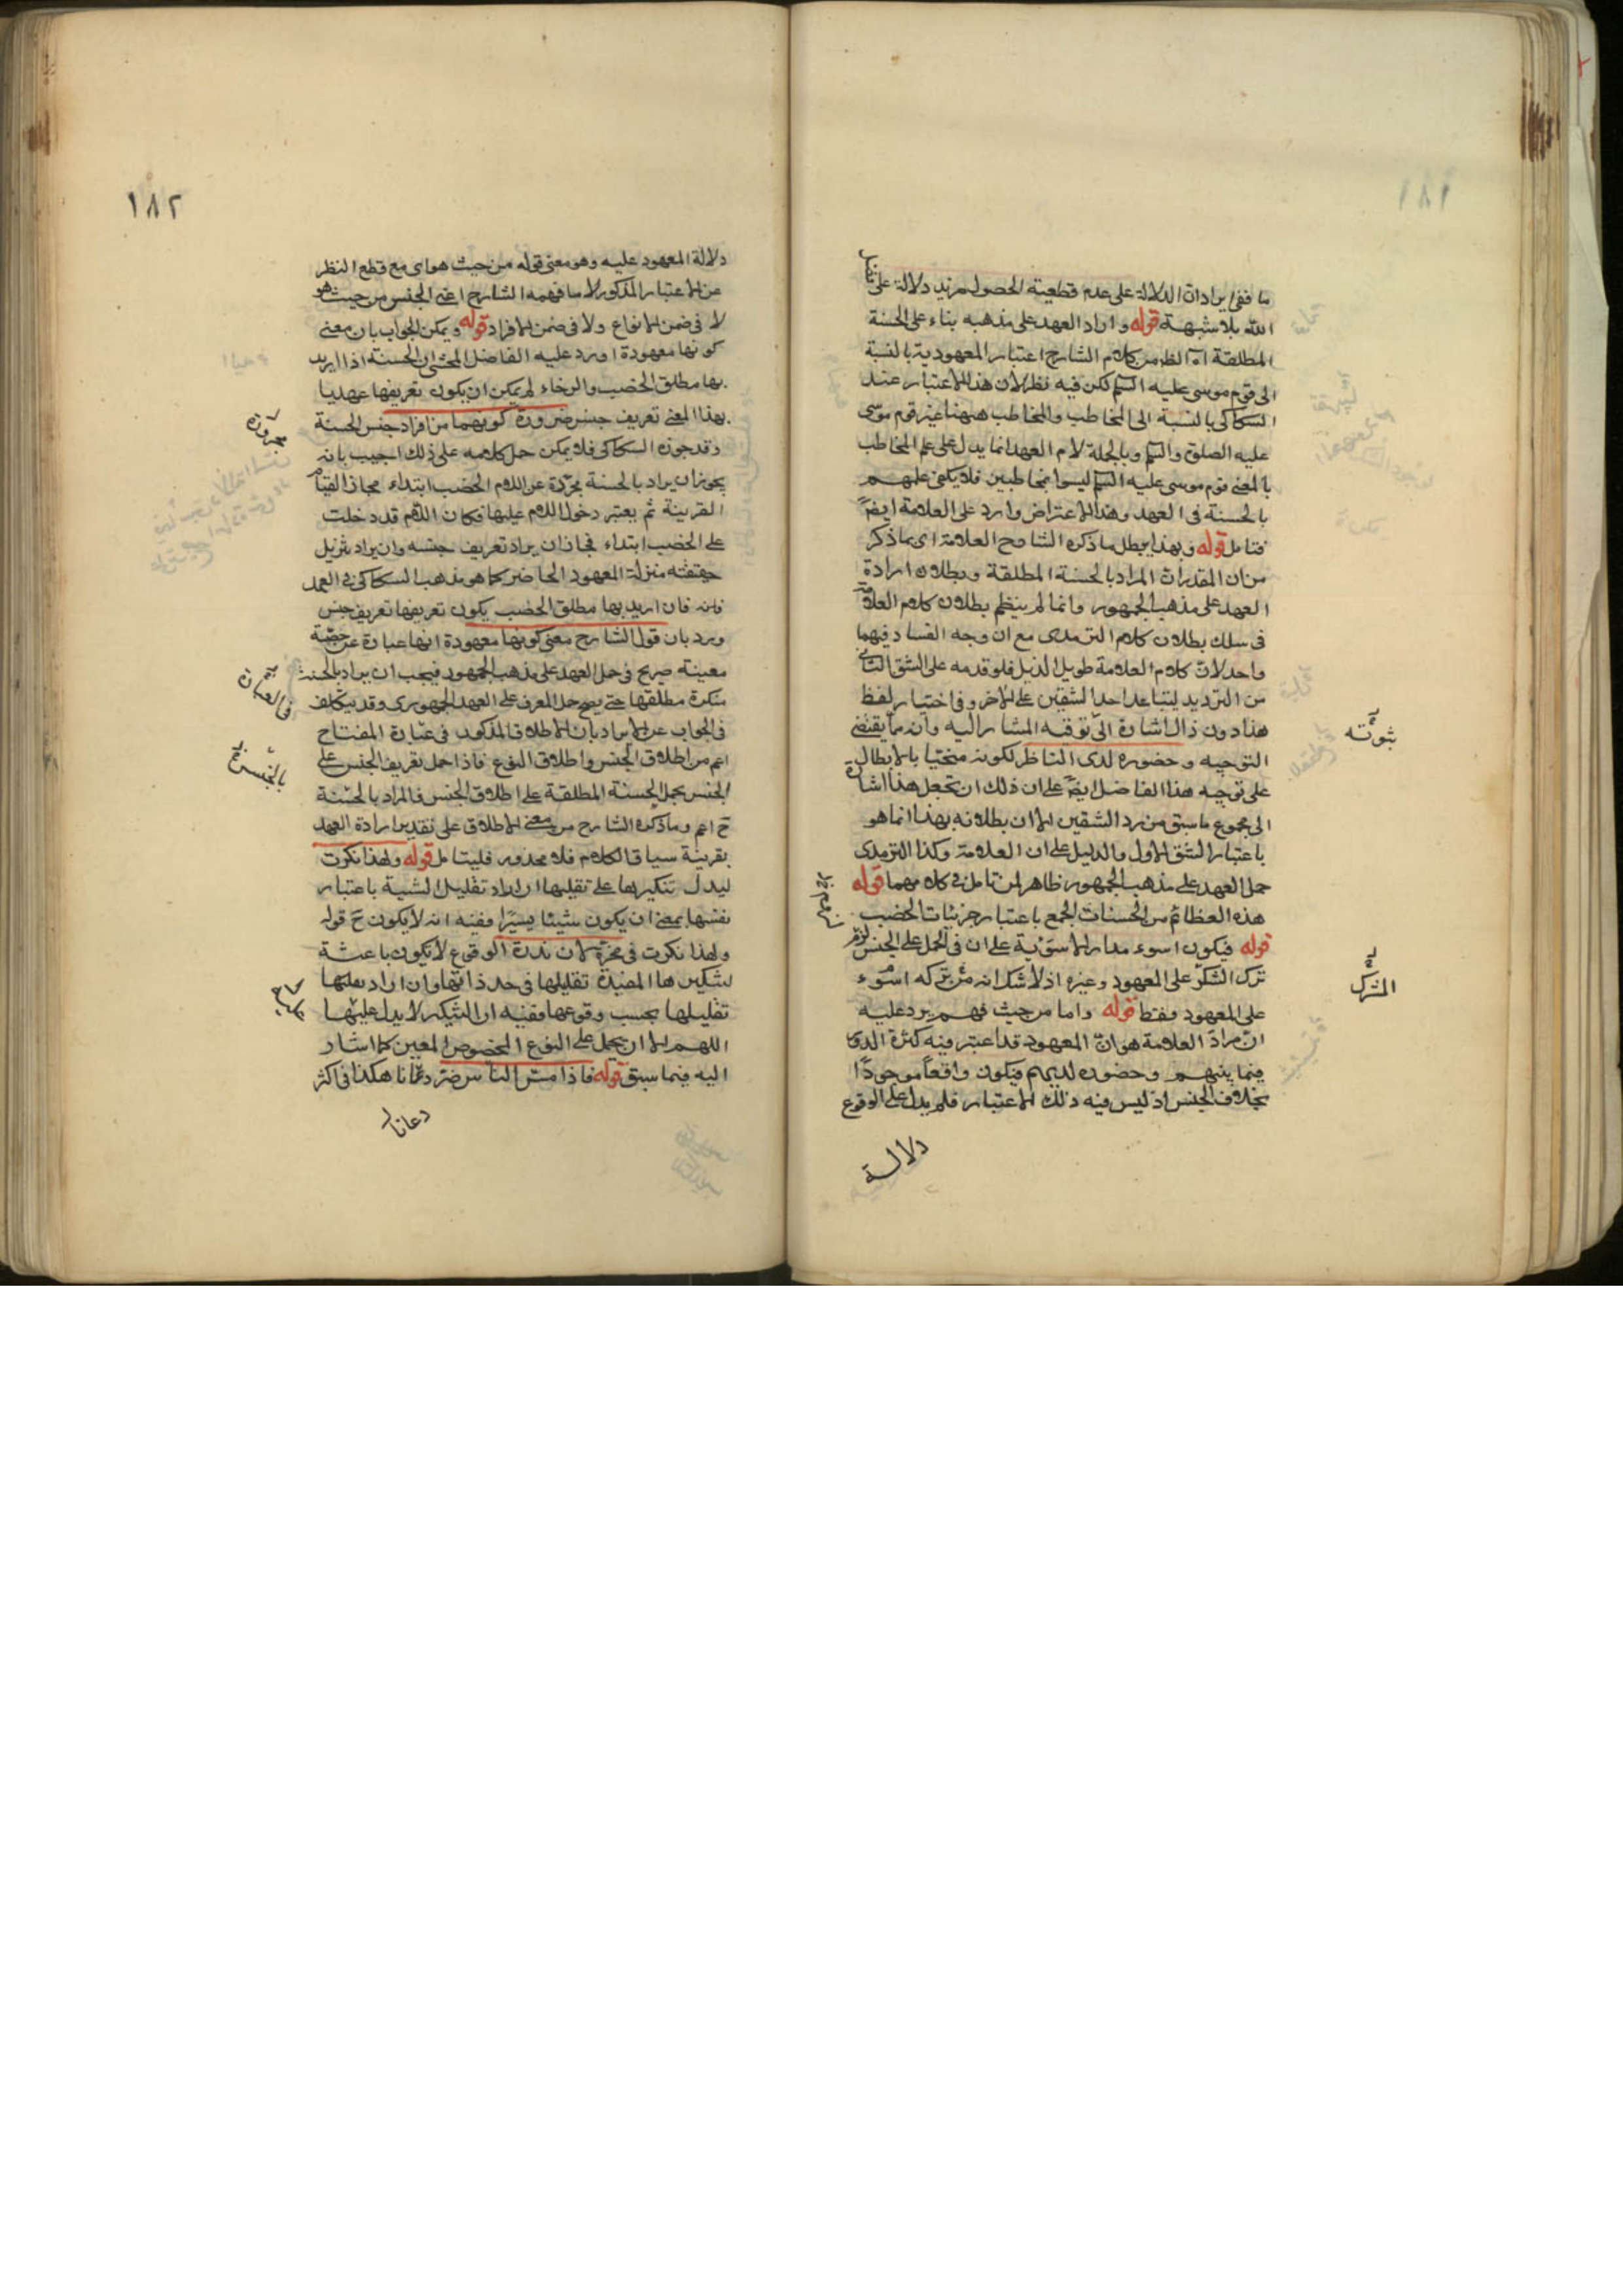 ١٨١
ما ففى ايرادات الدلالة على عدم قطعية الحصول مزيد دلالة على تفضل
الله بلا شبهة قوله واراد العهد على مذهبه بناء على الحسنة
المطلقة اه الظ من كلام الشارح اعتبار المعهودية بالنسبة
الى قوم موسى عليه السم لكن فيه نظر لان هذا الاعتبار عند
السكاكى بالنسبة الى المخاطب والمخاطب ههنا غير قوم موسى
عليه الصلوة والسم وبالجملة لام العهد انما يدل على علم المخاطب
بالمعنى قوم موسى عليه السم ليسوا بمخاطبين فلا يكفى علمهم
بالحسنة فى العهد وهذا الاعتراض وارد على العلامة ايضً
فتامل قوله وبهذا يبطل ما ذكره الشارح العلامة اى بما ذكر
من ان المقدر ان المراد بالحسنة المطلقة وبطلان ارادة
العهد على مذهب الجمهور وانما لم ينظم بطلان كلام العلامة
فى سلك بطلان كلام الترمذى مع ان وجه الفساد فيهما
واحد لان كلام العلامة طويل الذيل فلو قدمه على الشق الثانى
من الترديد لتباعد احد الشقين على الاخر وفى اختيار لفظ
هذا دون ذاك اشارة الى توقف المشار اليه وان ما يقتضى
التوجيه وحضوره لدى الناظر لكونه مختيا بالابطال
على توجيه هذا الفاضل ايضً على ان ذلك ان تجعل هذا اشارة
الى مجموع ما سبق من رد الشقين الا ان بطلانه بهذا انما هو
باعتبار الشق الاول والدليل على ان العلامة وكذا الترمذى
حمل العهد على مذهب الجمهور ظاهر لمن تامل فى كلامهما قوله
هذه العظائم من الحسنات الجمع باعتبار جزئيات الخصب
قوله فيكون اسوء مدار الاسوئية على ان فى الحمل على الجنس لزم
ترك الشكر على المعهود وغيره اذ لا شك انه من تركه اسوء
على المعهود فقط قوله واما من حيث فهم يرد عليه
ان مراد العلامة هو ان المعهود قد اعتبر فيه كثرة الدور
فيما بينهم وحضوره لديهم فيكون واقعاً موجودًا
بخلاف الجنس اذ ليس فيه ذلك الاعتبار فلم يدل على الوقوع
دلالة
ثبوته
الشرك
١٨٢
دلالة المعهود عليه وهو معنى قوله من حيث هو اى مع قطع النظر
عن الاعتبار المذكور لا ما فهمه الشارح اعنى الجنس من حيث هو
لا فى ضمن الانواع ولا فى ضمن الافراد قوله ويمكن الجواب بان معنى
كونها معهودة اورد عليه الفاضل المحشى ان الحسنة اذا اريد
بها مطلق الخصب والرخاء لم يمكن ان يكون تعريفها عهديا
بهذا المعنى تعريف جنس ضرورة كونهما من افراد جنس الحسنة
وقد جوزه السكاكى فلا يمكن حمل كلامه على ذلك اجيب بانه
يجوز ان يراد بالحسنة مجردة عن اللام الخصب ابتداء مجازا لقيام
القرينة ثم يعتبر دخول اللام عليها فكان اللام قد دخلت
على الخصب ابتداء فجاز ان يراد تعريف جنسه وان يراد تنزيل
حقيقته منزلة المعهود الحاضر كما هو مذهب السكاكى فى العهد
فانه فان اريد بها مطلق الخصب يكون تعريفها تعريف جنس
ورد بان قول الشارح معنى كونها معهودة انها عبارة عن حصة
معينة صريح فى حمل العهد على مذهب الجمهور فيجب ان يراد بالحسنة
منكرة مطلقها حتى يصح حمل المعرف على العهد الجمهورى وقد يتكلف
فى الجواب عن الايراد بان الاطلاق المذكور فى عبارة المفتاح
اعم من اطلاق الجنس واطلاق النوع فاذا حمل تعريف الجنس على
الجنس يحمل الحسنة المطلقة على اطلاق الجنس فالمراد بالحسنة
ح اعم وما ذكره الشارح من معنى الاطلاق على تقدير ارادة العهد
بقرينة سياق الكلام فلا محذور فليتامل قوله ولهذا نكرت
ليدل تنكيرها على تقليلها ان اراد تقليل السيئة باعتبار
نفسها بمعنى ان يكون شيئا يسيرا ففيه انه لا يكون ح قوله
ولهذا نكرت فى محزه لان ندرة الوقوع لا يكون باعثة
لتنكيرها المفيدة تقليلها فى حد ذاتها وان اراد بقلتها
تقليلها بحسب وقوعها ففيه ان التنكير لا يدل عليها
اللهم الا ان يحمل على النوع المخصوص المعين كما اشار
اليه فيما سبق قوله فاذا مس الناس ضر دعانا هكذا فى اكثر
دعانا
مجرورة
فى العبارة